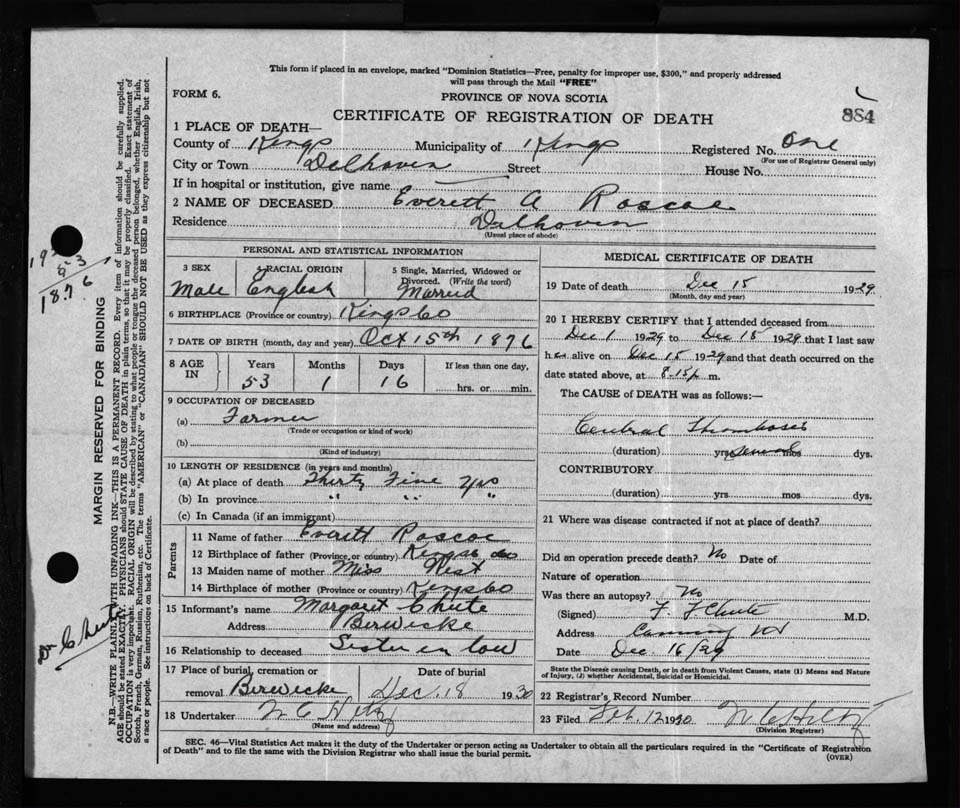 This form if placed in an envelope, marked "Dominion Statistics—Free, penalty for improper use, $300," and properly addressed
will pass through the Mail "FREE"
FORM 6.
PROVINCE OF NOVA SCOTIA
CERTIFICATE OF REGISTRATION OF DEATH
884
1 PLACE OF DEATH—
County of Kings Municipality of Kings Registered No. One
(For use of Registrar General only)
City or Town Delhaven Street House No.
If in hospital or institution, give name
2 NAME OF DECEASED Everett A Roscoe
Residence Delhaven
(Usual place of abode)
PERSONAL AND STATISTICAL INFORMATION
3 SEX Male
4 RACIAL ORIGIN English
5 Single, Married, Widowed or Divorced. (Write the word) Married
6 BIRTHPLACE (Province or country) Kings Co
7 DATE OF BIRTH (month, day and year) Oct 15th 1876
8 AGE IN Years 53 Months 1 Days 16 If less than one day, hrs. or min.
9 OCCUPATION OF DECEASED
(a) Farmer
(Trade or occupation or kind of work)
(b)
(Kind of industry)
10 LENGTH OF RESIDENCE (in years and months)
(a) At place of death Thirty Five Yrs
(b) In province " " "
(c) In Canada (if an immigrant)
Parents
11 Name of father Everett Roscoe
12 Birthplace of father (Province, or country) Kings Co
13 Maiden name of mother Miss West
14 Birthplace of mother (Province or country) Kings Co
15 Informant's name Margaret Chute
Address Berwicke
16 Relationship to deceased Sister in law
17 Place of burial, cremation or removal Berwicke Date of burial Dec. 18 1930
18 Undertaker
(Name and address)
MEDICAL CERTIFICATE OF DEATH
19 Date of death Dec 15 1929
(Month, day and year)
20 I HEREBY CERTIFY that I attended deceased from
Dec 1 1929 to Dec 15 1929 that I last saw
him alive on Dec 15 1929 and that death occurred on the
date stated above, at 8.15 p m.
The CAUSE of DEATH was as follows:—
Cerebral Thrombosis
(duration) yrs mos dys.
CONTRIBUTORY
(duration) yrs mos dys.
21 Where was disease contracted if not at place of death?
Did an operation precede death? No Date of
Nature of operation
Was there an autopsy? No
(Signed) F F Chute M.D.
Address Canning NS
Date Dec. 16/29
State the Disease causing Death, or in death from Violent Causes, state (1) Means and Nature
of Injury, (2) whether Accidental, Suicidal or Homicidal.
22 Registrar's Record Number
23 Filed Feb. 12 1930
(Division Registrar)
SEC. 46—Vital Statistics Act makes it the duty of the Undertaker or person acting as Undertaker to obtain all the particulars required in the "Certificate of Registration
of Death" and to file the same with the Division Registrar who shall issue the burial permit.
(OVER)
MARGIN RESERVED FOR BINDING
N.B.—WRITE PLAINLY WITH UNFADING INK—THIS IS A PERMANENT RECORD. Every item of information should be carefully supplied.
AGE should be stated EXACTLY. PHYSICIANS should STATE CAUSE OF DEATH in plain terms, so that it may be properly classified. Exact statement of
OCCUPATION is very important. RACIAL ORIGIN will be described by stating to what people or tongue the deceased person belonged, whether English, Irish,
Scotch, French, German, Russian, Ruthenian, etc. The terms "AMERICAN" or "CANADIAN" SHOULD NOT BE USED as they express citizenship but not
a race or people. See instructions on back of Certificate.
53
1876
Dr Chute